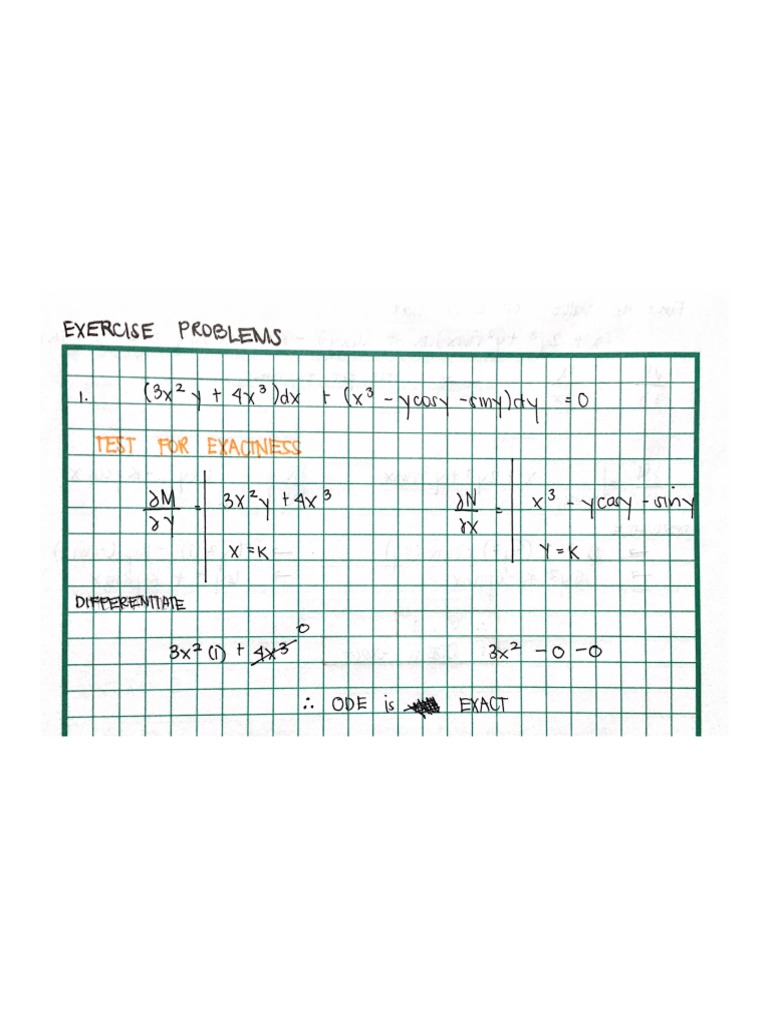 EXERCISE PROBLEMS
1. (3x²y + 4x³)dx + (x³ - ycosy - siny)dy = 0
TEST FOR EXACTNESS
∂M/∂Y = | 3x²y + 4x³ ∂N/∂X = | x³ - ycosy - siny
X = K Y = K
DIFFERENTIATE
3x²(1) + 4x³ 0 3x² - 0 - 0
∴ ODE is EXACT